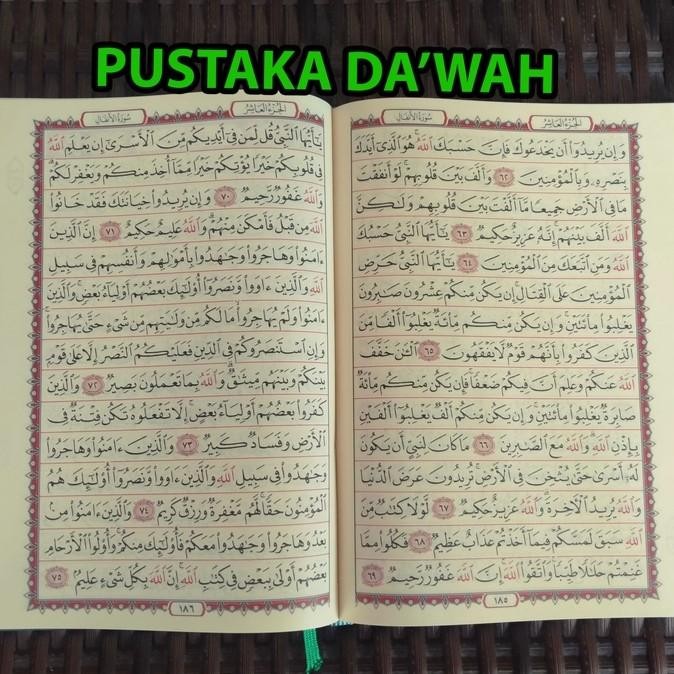 PUSTAKA DA'WAH
الجزء العاشر
سورة الأنفال
وَإِن يُرِيدُوٓا۟ أَن يَخْدَعُوكَ فَإِنَّ حَسْبَكَ ٱللَّهُ هُوَ ٱلَّذِىٓ أَيَّدَكَ
بِنَصْرِهِۦ وَبِٱلْمُؤْمِنِينَ ٦٢ وَأَلَّفَ بَيْنَ قُلُوبِهِمْ لَوْ أَنفَقْتَ
مَا فِى ٱلْأَرْضِ جَمِيعًا مَّآ أَلَّفْتَ بَيْنَ قُلُوبِهِمْ وَلَٰكِنَّ
ٱللَّهَ أَلَّفَ بَيْنَهُمْ إِنَّهُۥ عَزِيزٌ حَكِيمٌ ٦٣ يَٰٓأَيُّهَا ٱلنَّبِىُّ حَسْبُكَ
ٱللَّهُ وَمَنِ ٱتَّبَعَكَ مِنَ ٱلْمُؤْمِنِينَ ٦٤ يَٰٓأَيُّهَا ٱلنَّبِىُّ حَرِّضِ
ٱلْمُؤْمِنِينَ عَلَى ٱلْقِتَالِ إِن يَكُن مِّنكُمْ عِشْرُونَ صَٰبِرُونَ
يَغْلِبُوا۟ مِا۟ئَتَيْنِ وَإِن يَكُن مِّنكُم مِّا۟ئَةٌ يَغْلِبُوٓا۟ أَلْفًا مِّنَ
ٱلَّذِينَ كَفَرُوا۟ بِأَنَّهُمْ قَوْمٌ لَّا يَفْقَهُونَ ٦٥ ٱلْـَٰٔنَ خَفَّفَ
ٱللَّهُ عَنكُمْ وَعَلِمَ أَنَّ فِيكُمْ ضَعْفًا فَإِن يَكُن مِّنكُم مِّا۟ئَةٌ
صَابِرَةٌ يَغْلِبُوا۟ مِا۟ئَتَيْنِ وَإِن يَكُن مِّنكُمْ أَلْفٌ يَغْلِبُوٓا۟ أَلْفَيْنِ
بِإِذْنِ ٱللَّهِ وَٱللَّهُ مَعَ ٱلصَّٰبِرِينَ ٦٦ مَا كَانَ لِنَبِىٍّ أَن يَكُونَ
لَهُۥٓ أَسْرَىٰ حَتَّىٰ يُثْخِنَ فِى ٱلْأَرْضِ تُرِيدُونَ عَرَضَ ٱلدُّنْيَا
وَٱللَّهُ يُرِيدُ ٱلْـَٔاخِرَةَ وَٱللَّهُ عَزِيزٌ حَكِيمٌ ٦٧ لَّوْلَا كِتَٰبٌ مِّنَ
ٱللَّهِ سَبَقَ لَمَسَّكُمْ فِيمَآ أَخَذْتُمْ عَذَابٌ عَظِيمٌ ٦٨ فَكُلُوا۟ مِمَّا
غَنِمْتُمْ حَلَٰلًا طَيِّبًا وَٱتَّقُوا۟ ٱللَّهَ إِنَّ ٱللَّهَ غَفُورٌ رَّحِيمٌ ٦٩
١٨٥
الجزء العاشر
سورة الأنفال
يَٰٓأَيُّهَا ٱلنَّبِىُّ قُل لِّمَن فِىٓ أَيْدِيكُم مِّنَ ٱلْأَسْرَىٰٓ إِن يَعْلَمِ ٱللَّهُ
فِى قُلُوبِكُمْ خَيْرًا يُؤْتِكُمْ خَيْرًا مِّمَّآ أُخِذَ مِنكُمْ وَيَغْفِرْ لَكُمْ
وَٱللَّهُ غَفُورٌ رَّحِيمٌ ٧٠ وَإِن يُرِيدُوا۟ خِيَانَتَكَ فَقَدْ خَانُوا۟
ٱللَّهَ مِن قَبْلُ فَأَمْكَنَ مِنْهُمْ وَٱللَّهُ عَلِيمٌ حَكِيمٌ ٧١ إِنَّ ٱلَّذِينَ
ءَامَنُوا۟ وَهَاجَرُوا۟ وَجَٰهَدُوا۟ بِأَمْوَٰلِهِمْ وَأَنفُسِهِمْ فِى سَبِيلِ
ٱللَّهِ وَٱلَّذِينَ ءَاوَوا۟ وَّنَصَرُوٓا۟ أُو۟لَٰٓئِكَ بَعْضُهُمْ أَوْلِيَآءُ بَعْضٍ وَٱلَّذِينَ
ءَامَنُوا۟ وَلَمْ يُهَاجِرُوا۟ مَا لَكُم مِّن وَلَٰيَتِهِم مِّن شَىْءٍ حَتَّىٰ يُهَاجِرُوا۟
وَإِنِ ٱسْتَنصَرُوكُمْ فِى ٱلدِّينِ فَعَلَيْكُمُ ٱلنَّصْرُ إِلَّا عَلَىٰ قَوْمٍۭ
بَيْنَكُمْ وَبَيْنَهُم مِّيثَٰقٌ وَٱللَّهُ بِمَا تَعْمَلُونَ بَصِيرٌ ٧٢ وَٱلَّذِينَ
كَفَرُوا۟ بَعْضُهُمْ أَوْلِيَآءُ بَعْضٍ إِلَّا تَفْعَلُوهُ تَكُن فِتْنَةٌ فِى
ٱلْأَرْضِ وَفَسَادٌ كَبِيرٌ ٧٣ وَٱلَّذِينَ ءَامَنُوا۟ وَهَاجَرُوا۟
وَجَٰهَدُوا۟ فِى سَبِيلِ ٱللَّهِ وَٱلَّذِينَ ءَاوَوا۟ وَّنَصَرُوٓا۟ أُو۟لَٰٓئِكَ هُمُ
ٱلْمُؤْمِنُونَ حَقًّا لَّهُم مَّغْفِرَةٌ وَرِزْقٌ كَرِيمٌ ٧٤ وَٱلَّذِينَ ءَامَنُوا۟ مِنۢ
بَعْدُ وَهَاجَرُوا۟ وَجَٰهَدُوا۟ مَعَكُمْ فَأُو۟لَٰٓئِكَ مِنكُمْ وَأُو۟لُوا۟ ٱلْأَرْحَامِ
بَعْضُهُمْ أَوْلَىٰ بِبَعْضٍ فِى كِتَٰبِ ٱللَّهِ إِنَّ ٱللَّهَ بِكُلِّ شَىْءٍ عَلِيمٌۢ ٧٥
١٨٦